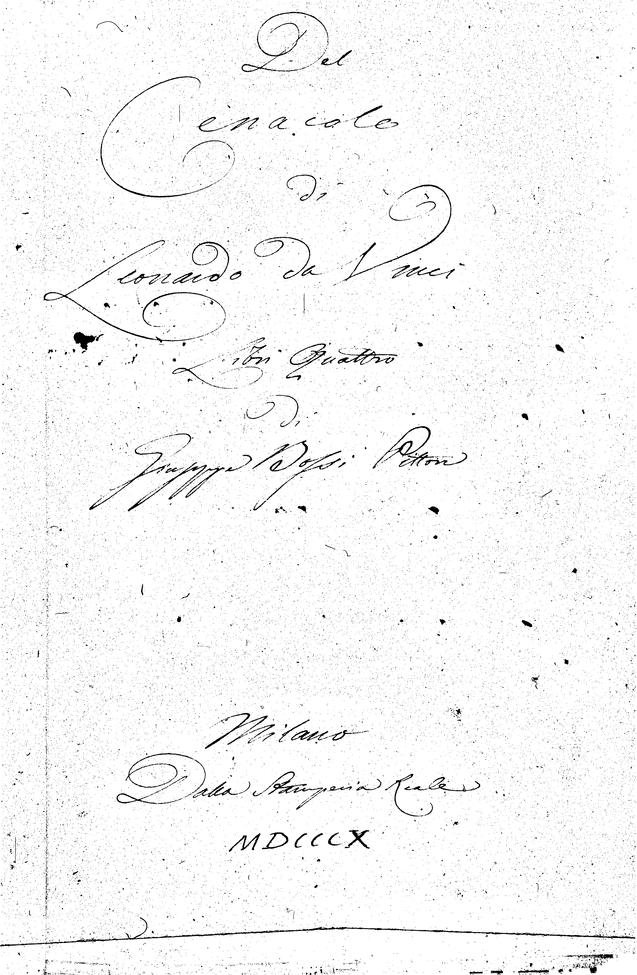 Del
Cenacolo
di
Leonardo da Vinci
Libri Quattro
di
Giuseppe Bossi Pittore
Milano
Dalla Stamperia Reale
MDCCCX